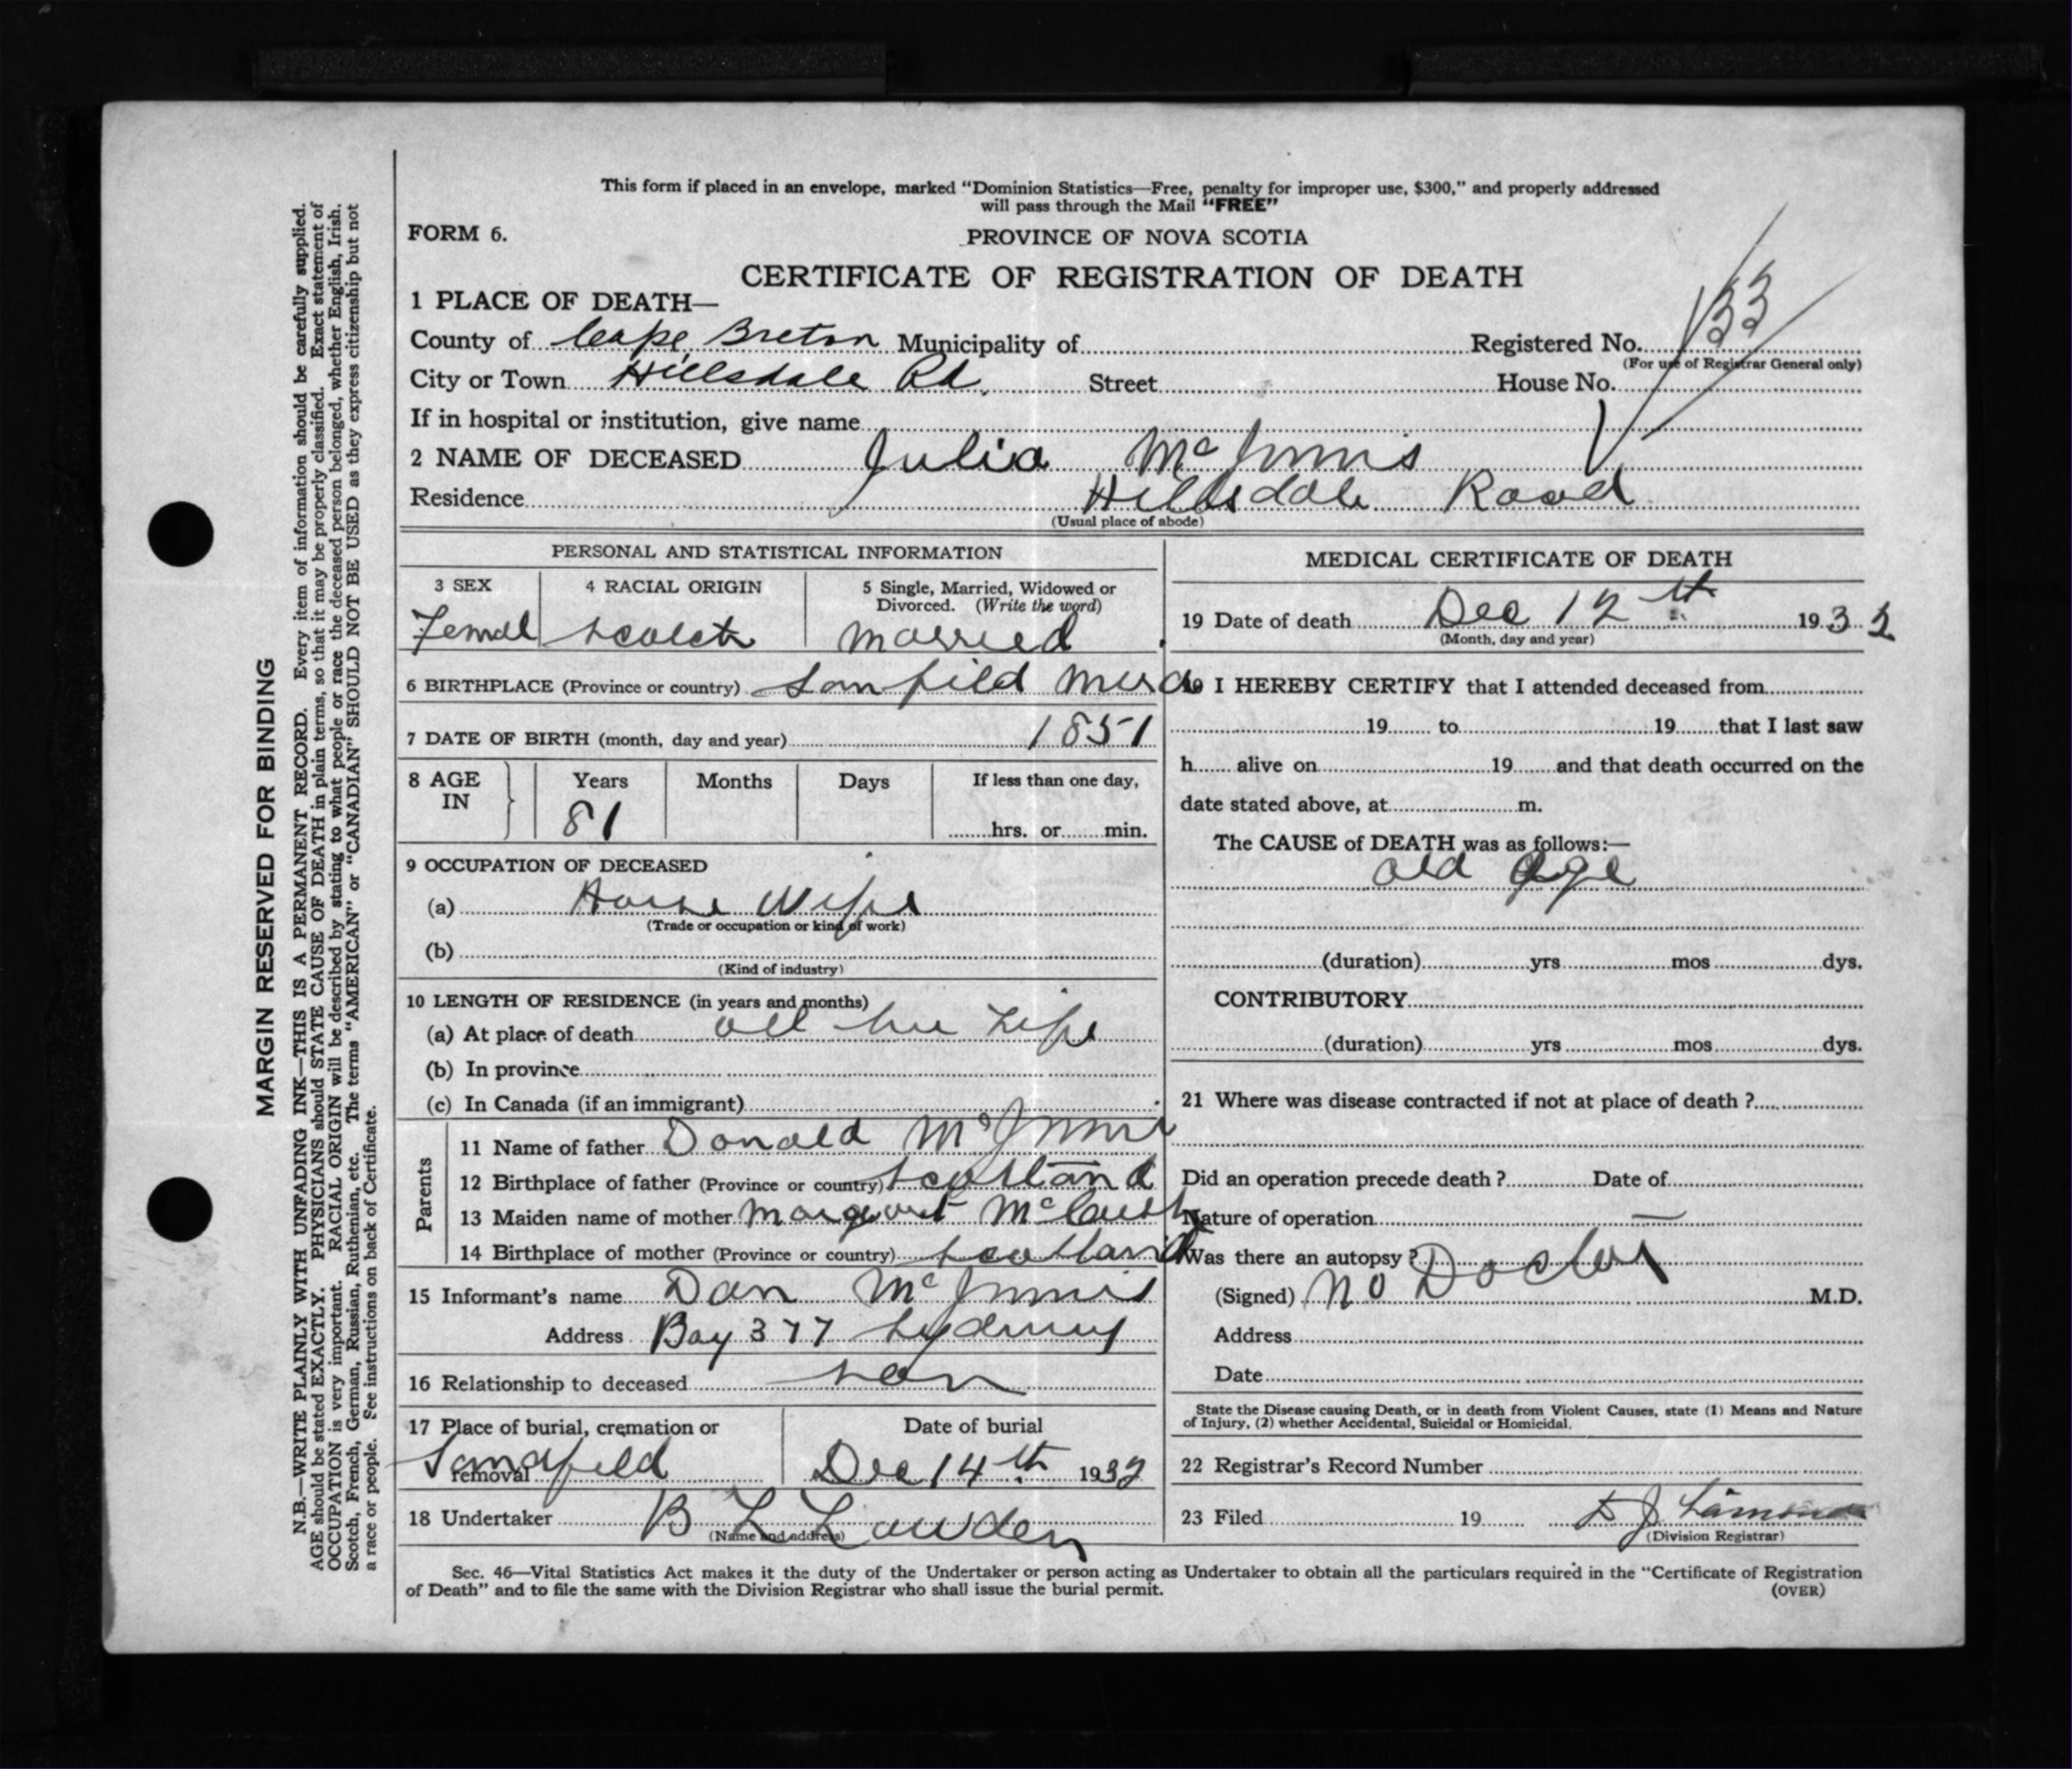 This form if placed in an envelope, marked “Dominion Statistics—Free, penalty for improper use, $300,” and properly addressed
will pass through the Mail “FREE”
FORM 6.
PROVINCE OF NOVA SCOTIA
CERTIFICATE OF REGISTRATION OF DEATH
1 PLACE OF DEATH—
County of Cape Breton Municipality of Registered No. 133
(For use of Registrar General only)
City or Town Hillsdale Rd. Street House No.
If in hospital or institution, give name
2 NAME OF DECEASED Julia McInnis
Residence Hillsdale Road
(Usual place of abode)
PERSONAL AND STATISTICAL INFORMATION
3 SEX 4 RACIAL ORIGIN 5 Single, Married, Widowed or
Divorced. (Write the word)
Femal Scotch Married
6 BIRTHPLACE (Province or country)
7 DATE OF BIRTH (month, day and year) 1851
8 AGE IN Years Months Days If less than one day,
81 hrs. or min.
9 OCCUPATION OF DECEASED
(a) House Wife
(Trade or occupation or kind of work)
(b)
(Kind of industry)
10 LENGTH OF RESIDENCE (in years and months)
(a) At place of death all her Life
(b) In province
(c) In Canada (if an immigrant)
Parents
11 Name of father Donald McInnis
12 Birthplace of father (Province or country) Scotland
13 Maiden name of mother Margaret
14 Birthplace of mother (Province or country) Scotland
15 Informant's name Dan McInnis
Address 377 Sydney
16 Relationship to deceased son
17 Place of burial, cremation or
removal Sandfield
Date of burial
Dec 14th 1932
18 Undertaker B L Lowden
(Name and address)
MEDICAL CERTIFICATE OF DEATH
19 Date of death Dec 12th 1932
(Month, day and year)
20 I HEREBY CERTIFY that I attended deceased from
19 to 19 that I last saw
h alive on 19 and that death occurred on the
date stated above, at m.
The CAUSE of DEATH was as follows:—
old age
(duration) yrs mos dys.
CONTRIBUTORY
(duration) yrs mos dys.
21 Where was disease contracted if not at place of death ?
Did an operation precede death ? Date of
Nature of operation
Was there an autopsy ?
(Signed) No Doctor M.D.
Address
Date
State the Disease causing Death, or in death from Violent Causes, state (1) Means and Nature
of Injury, (2) whether Accidental, Suicidal or Homicidal.
22 Registrar's Record Number
23 Filed 19 D J
(Division Registrar)
Sec. 46—Vital Statistics Act makes it the duty of the Undertaker or person acting as Undertaker to obtain all the particulars required in the “Certificate of Registration
of Death” and to file the same with the Division Registrar who shall issue the burial permit.
(OVER)
MARGIN RESERVED FOR BINDING
N.B.—WRITE PLAINLY WITH UNFADING INK—THIS IS A PERMANENT RECORD. Every item of information should be carefully supplied.
AGE should be stated EXACTLY. PHYSICIANS should STATE CAUSE OF DEATH in plain terms, so that it may be properly classified. Exact statement of
OCCUPATION is very important. RACIAL ORIGIN will be described by stating to what people or race the deceased person belonged, whether English, Irish.
Scotch, French, German, Russian, Ruthenian, etc. The terms “AMERICAN” or “CANADIAN” SHOULD NOT BE USED as they express citizenship but not
a race or people. See instructions on back of Certificate.